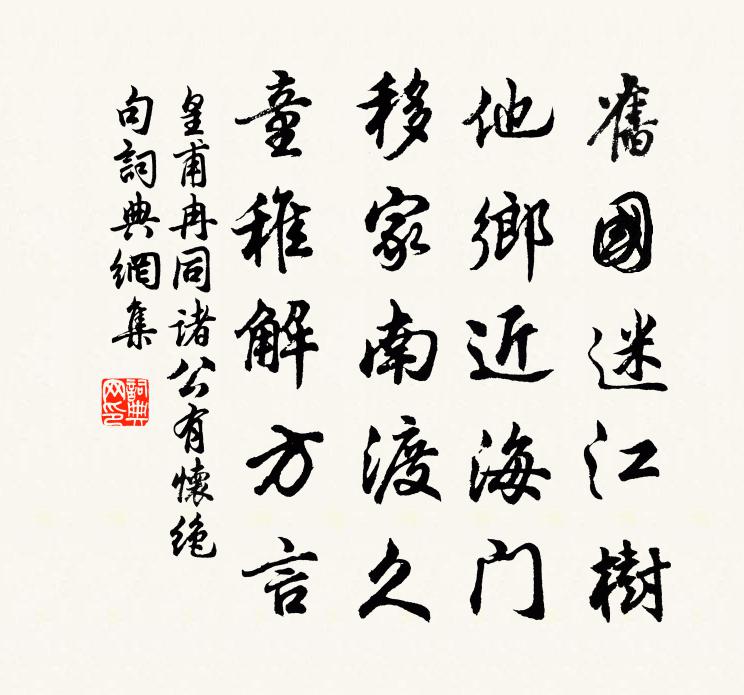 舊國迷江樹
他鄉近海门
移家南渡久
童稚解方言
皇甫冉同諸公有懷绝
句詞典網集
詞典
网印